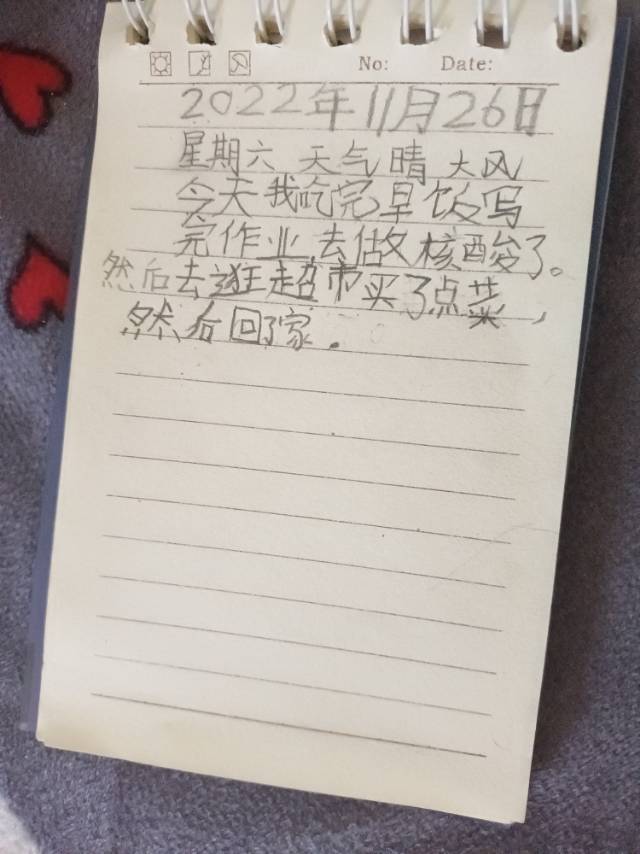 No: Date:
2022年11月26日
星期六 天气晴 大风
今天我吃完早饭写
完作业,去做核酸了。
然后去逛超市买了点菜,
然后回了家.